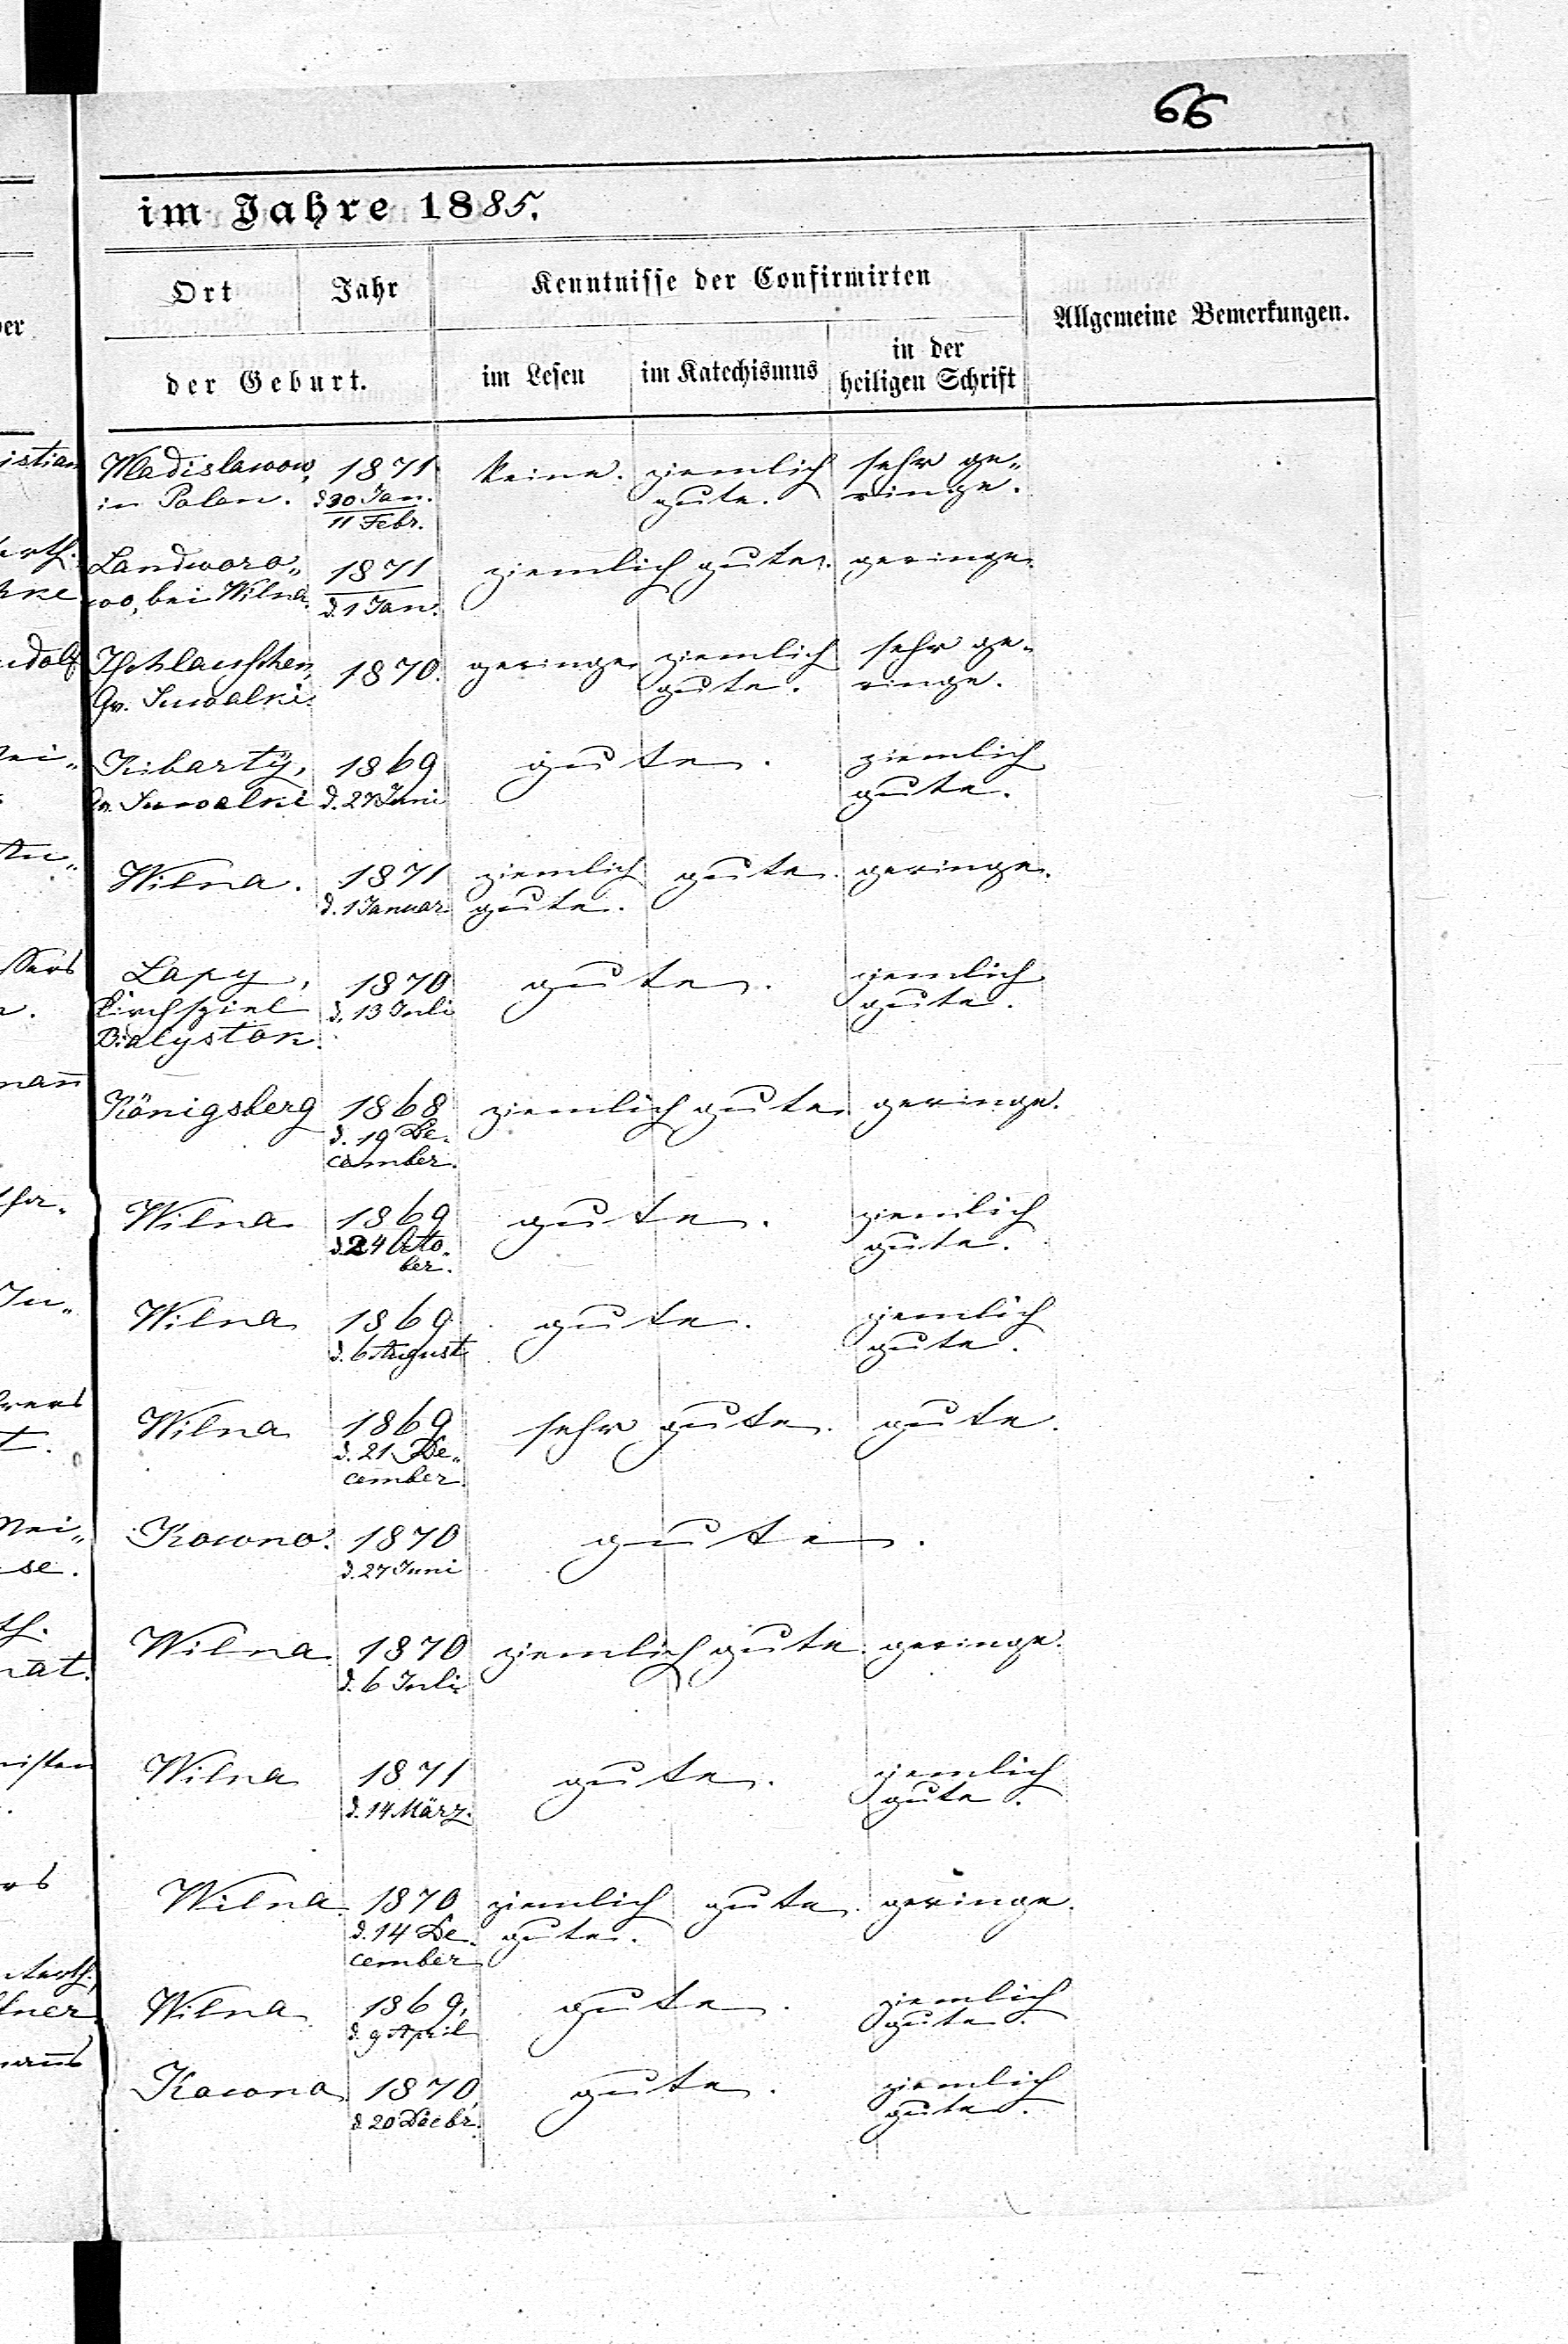 66
im Jahre 1885.
Ort Jahr Kenntnisse der Confirmirten Allgemeine Bemerkungen.
der Geburt. im Lesen im Katechismus in der
heiligen Schrift
Wladislawow, 1871 keine. ziemlich sehr ge„
in Polen. d. 30 Jan. gute. ringe.
11 Febr.
Landworo„ 1871 ziemlich gute. geringe.
wo, bei Wilna. d. 1 Jan.
1870. geringe ziemlich sehr ge„
Gv. Suwalki. gute. ringe.
Kibarty, 1869 gute. ziemlich
Gv. Suwalki d. 27 Juni gute.
Wilna. 1871 ziemlich gute. geringe.
d. 1 Januar. gute.
Lapy, 1870 gute. ziemlich
Kirchspiel d. 13 Juli gute.
Bialystok.
Königsberg 1868 ziemlich gute geringe.
d. 19 De„
cember.
Wilna 1869 gute. ziemlich
d. 24 Octo„ gute.
ber.
Wilna 1869 gute. ziemlich
d. 6 August gute.
Wilna 1869 sehr gute. gute.
d. 21 De„
cember.
Kowno. 1870 gute.
d. 27 Juni
Wilna. 1870 ziemlich gute. geringe.
d. 6 Juli
Wilna 1871 gute. ziemlich
d. 14 März. gute.
Wilna. 1870 ziemlich gute. geringe.
d. 14 De„ gute.
cember
Wilna 1869, gute. ziemlich
d. 9 April gute.
Kowno 1870, gute. ziemlich
d. 20 Decbr. gute.